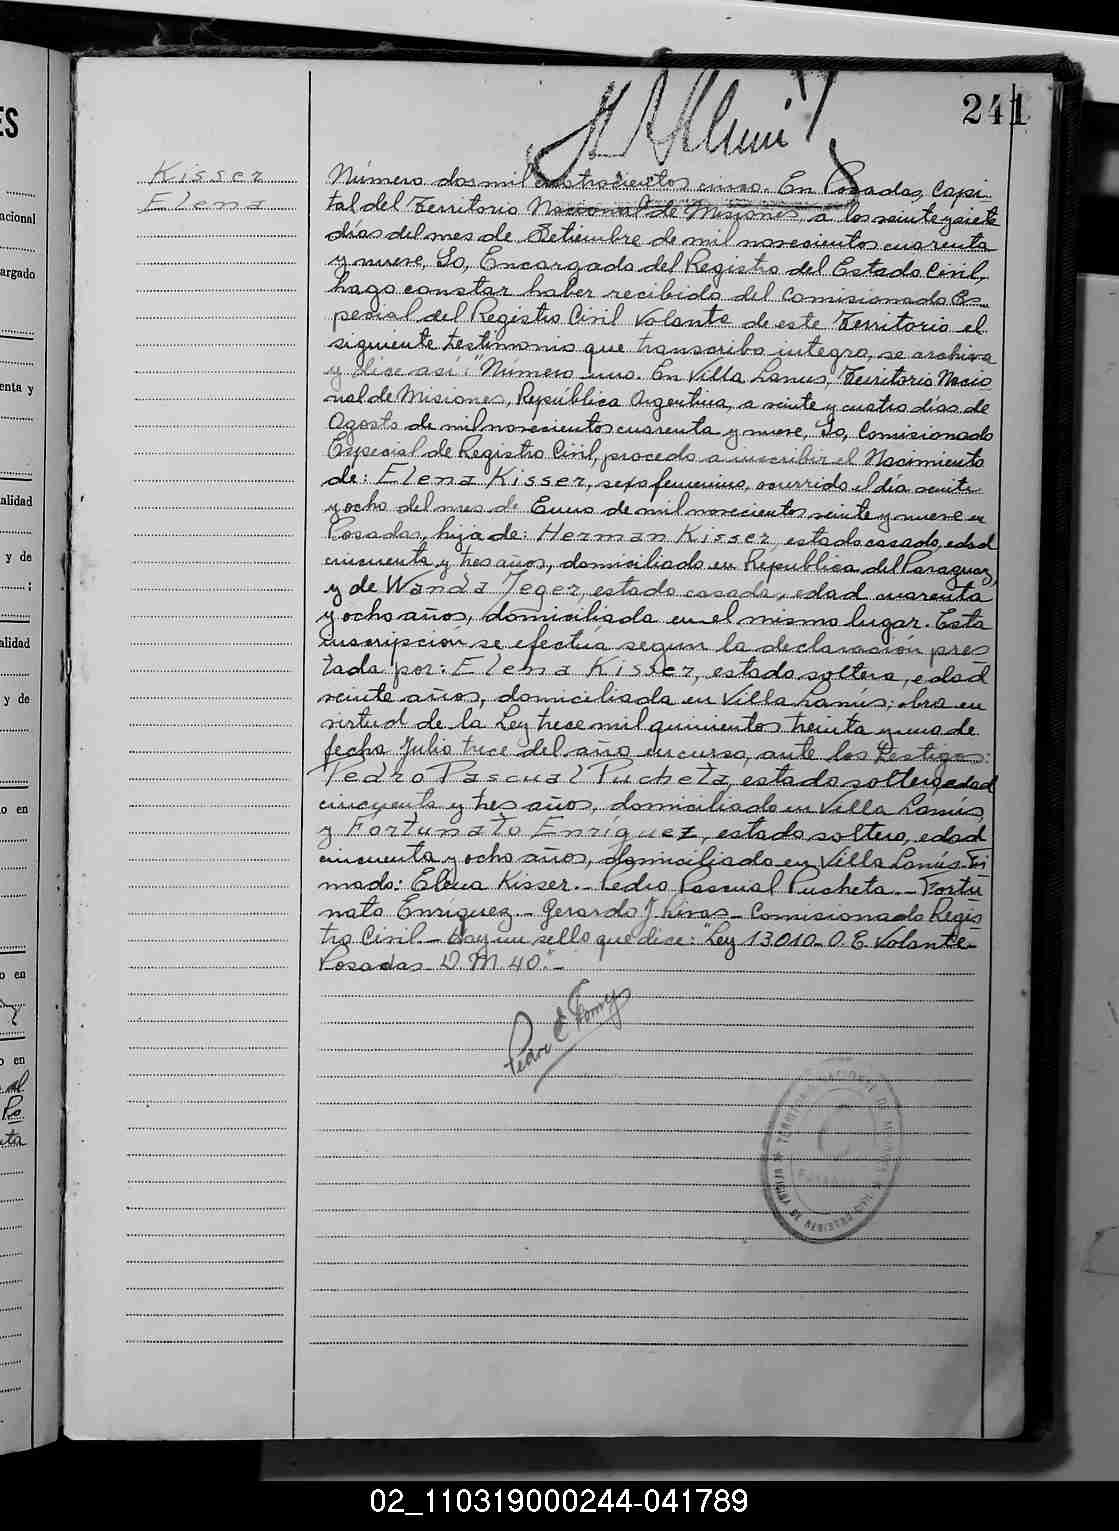 241
Kisser
Elena
Número dos mil cuatrocientos cinco. En Posadas, Capi-
tal del Territorio Nacional de Misiones, a los veinte y siete
días del mes de Setiembre de mil novecientos cuarenta
y nueve, Yo, Encargado del Registro del Estado Civil,
hago constar haber recibido del Comisionado Es-
pecial del Registro Civil Volante de este Territorio el
siguiente testimonio que transcribo integro, se archiva
y dice así: "Número uno. En Villa Lanus, Territorio Nacio
nal de Misiones, República Argentina, a veinte y cuatro días de
Agosto de mil novecientos cuarenta y nueve, Yo, Comisionado
Especial de Registro Civil, procedo a inscribir el Nacimiento
de: Elena Kisser, sexo femenino, ocurrido el día veinte
y ocho del mes de Enero de mil novecientos veinte y nueve en
Posadas, hija de: Herman Kisser, estado casado, edad
cincuenta y tres años, domiciliado en Republica del Paraguay,
y de Wanda Jeger, estado casada, edad cuarenta
y ocho años, domiciliada en el mismo lugar. Esta
inscripcion se efectúa segun la declaración pres
tada por: Elena Kisser, estado soltera, edad
veinte años, domiciliada en Villa Lanús; obra en
virtud de la Ley trece mil quinientos treinta y uno de
fecha Julio trece del año en curso, ante los Testigos:
Pedro Pascual Pucheta, estado soltero, edad
cincuenta y tres años, domiciliado en Villa Lanús,
y Fortunato Enríquez, estado soltero, edad
cincuenta y ocho años, domiciliado en Villa Lanús. Fir
mado: Elena Kisser.- Pedro Pascual Pucheta.- Fortu
nato Enríquez.- Gerardo J. Rivas- Comisionado Regis
tro Civil- Hay un sello que dice: "Ley 13.010- O.E. Volante-
Posadas D.M. 40".-
02_110319000244-041789